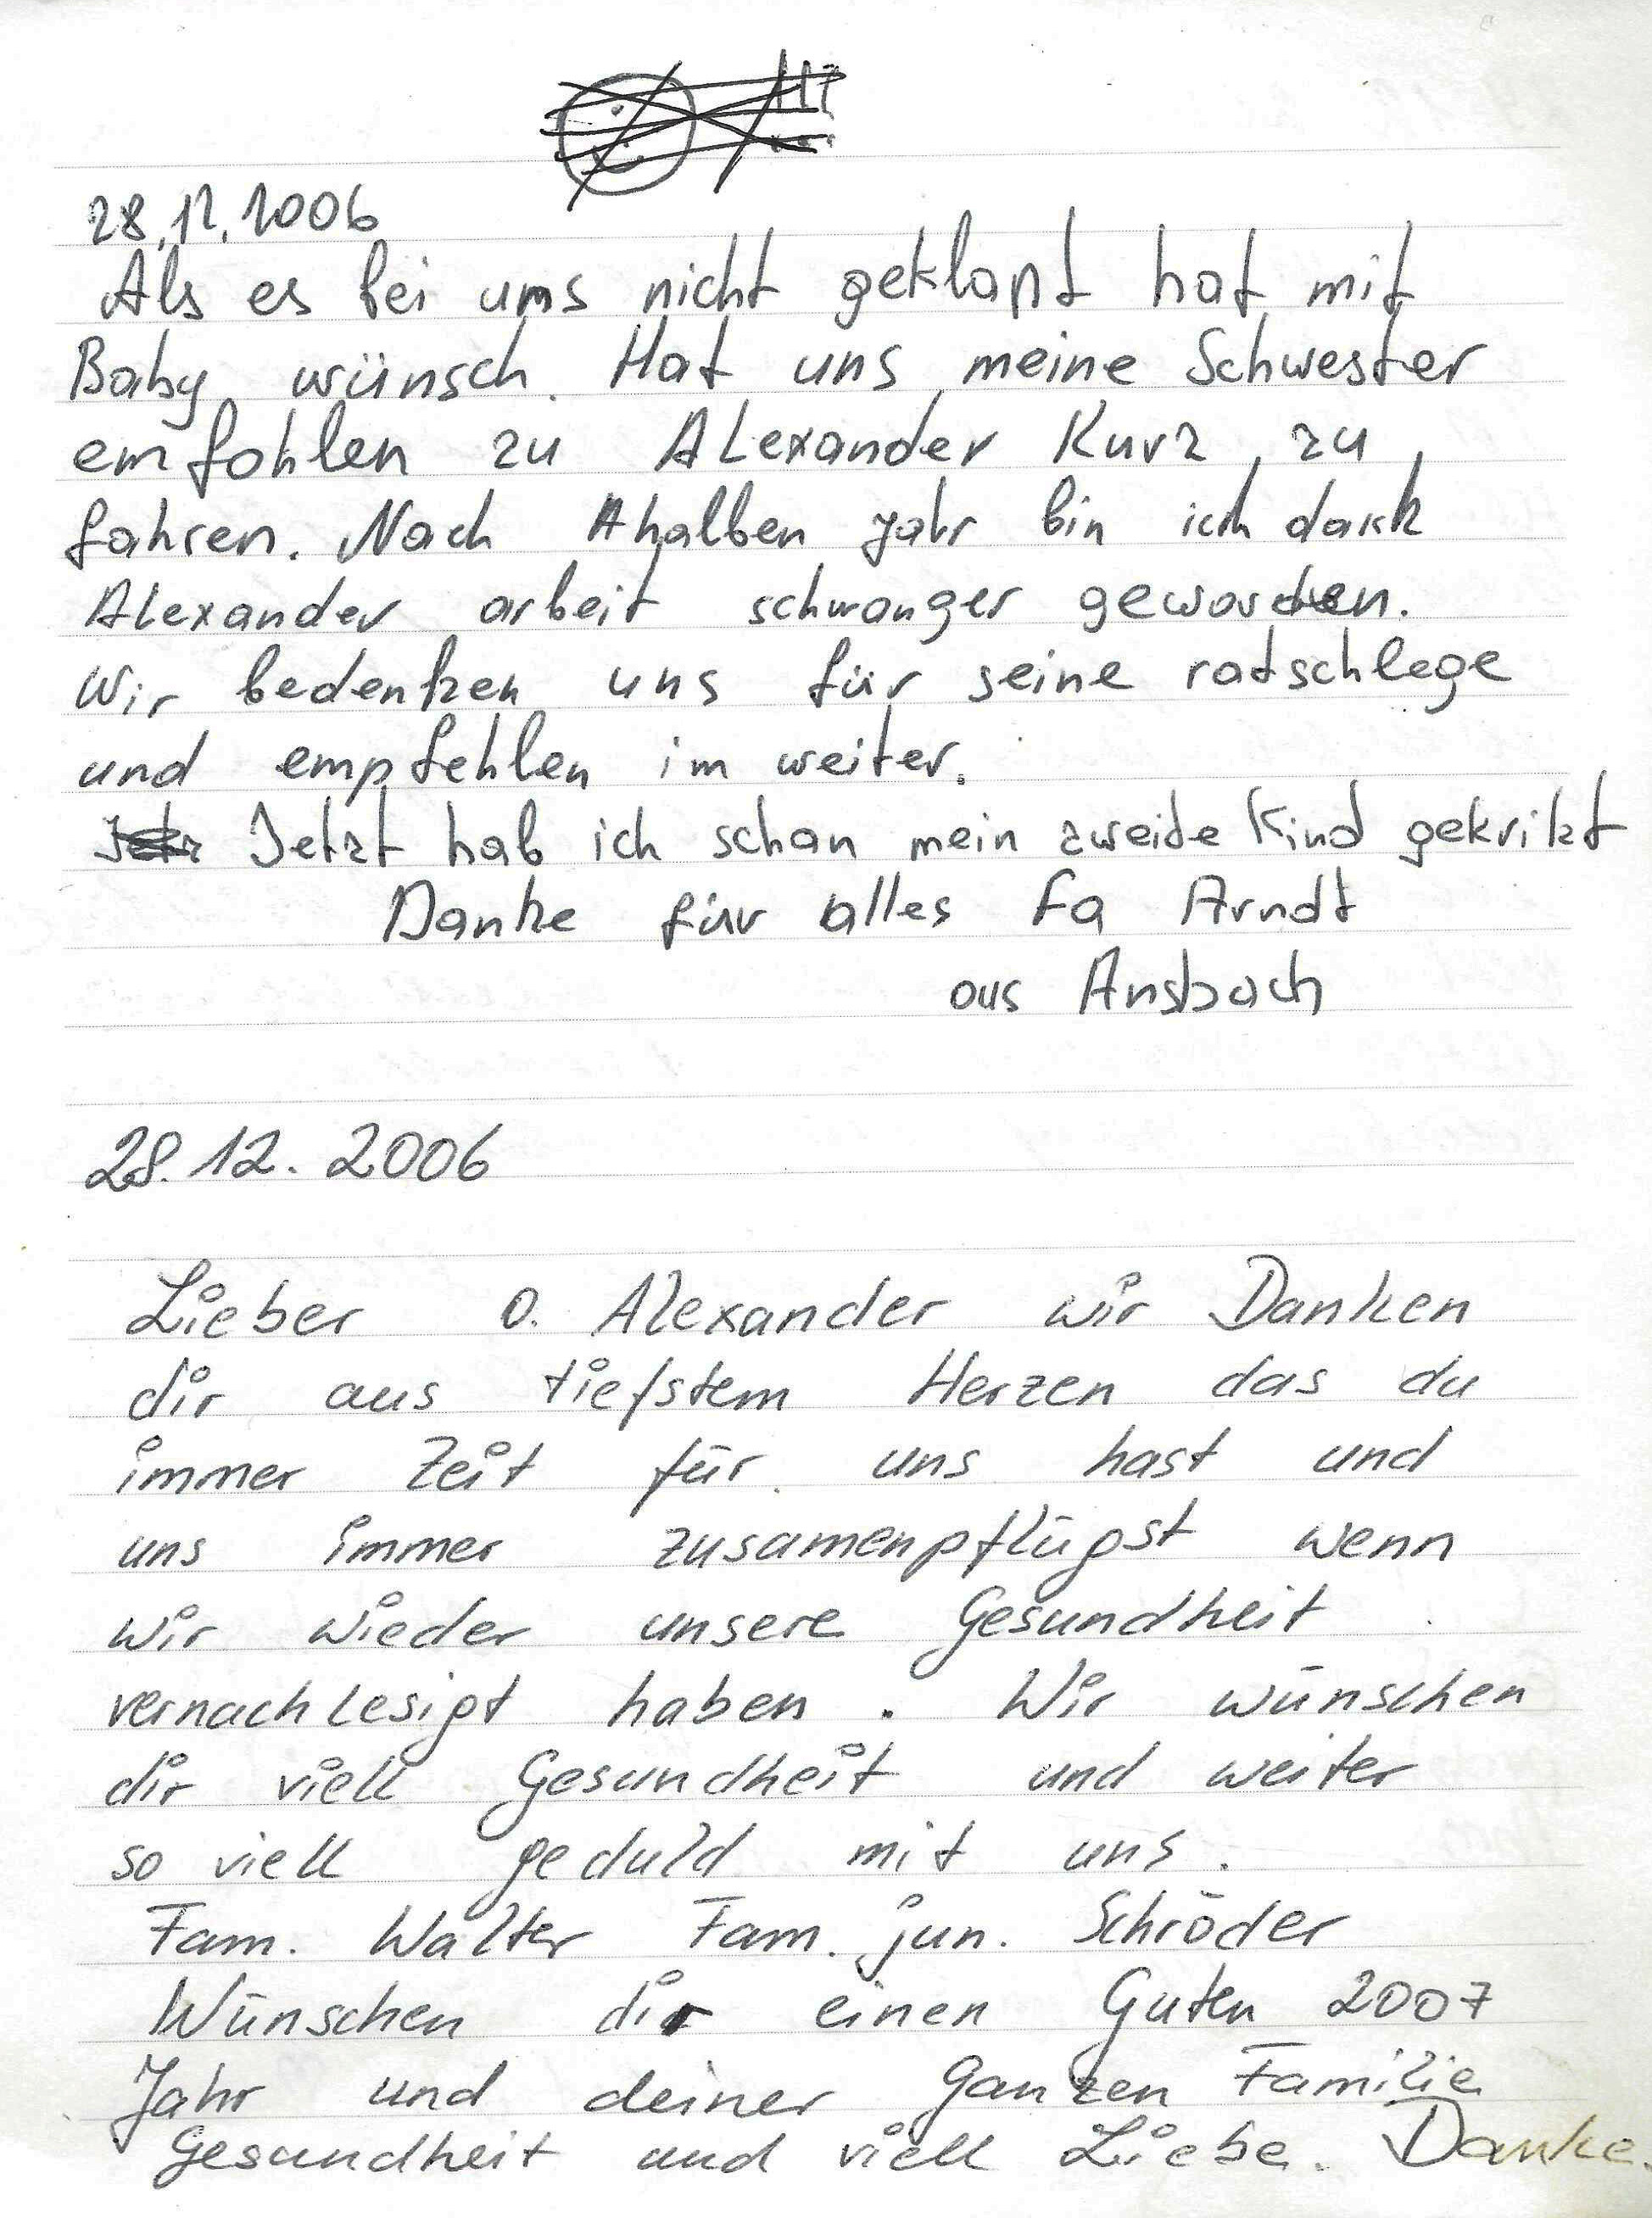 28.12.2006
Als es bei uns nicht geklapt hat mit
Baby wünsch. Hat uns meine Schwester
emfohlen zu Alexander Kurz zu
fahren. Nach halben jahr bin ich dank
Alexander arbeit schwanger geworden.
Wir bedenken uns für seine ratschlege
und empfehlen im weiter.
Jetzt hab ich schan mein zweite Kind gekrikt
Danke für alles Fa Arndt
aus Ansbach
28.12.2006
Lieber O. Alexander wir Danken
dir aus tiefstem Herzen das du
immer Zeit für uns hast und
uns immer zusamenpflügst wenn
wir wieder unsere Gesundheit
vernachlesigt haben. Wir wünschen
dir viell Gesundheit und weiter
so viell geduld mit uns.
Fam. Walter Fam. jun. Schröder
Wünschen dir einen Guten 2007
Jahr und deiner Ganzen Familie
Gesundheit und viell Liebe. Danke.